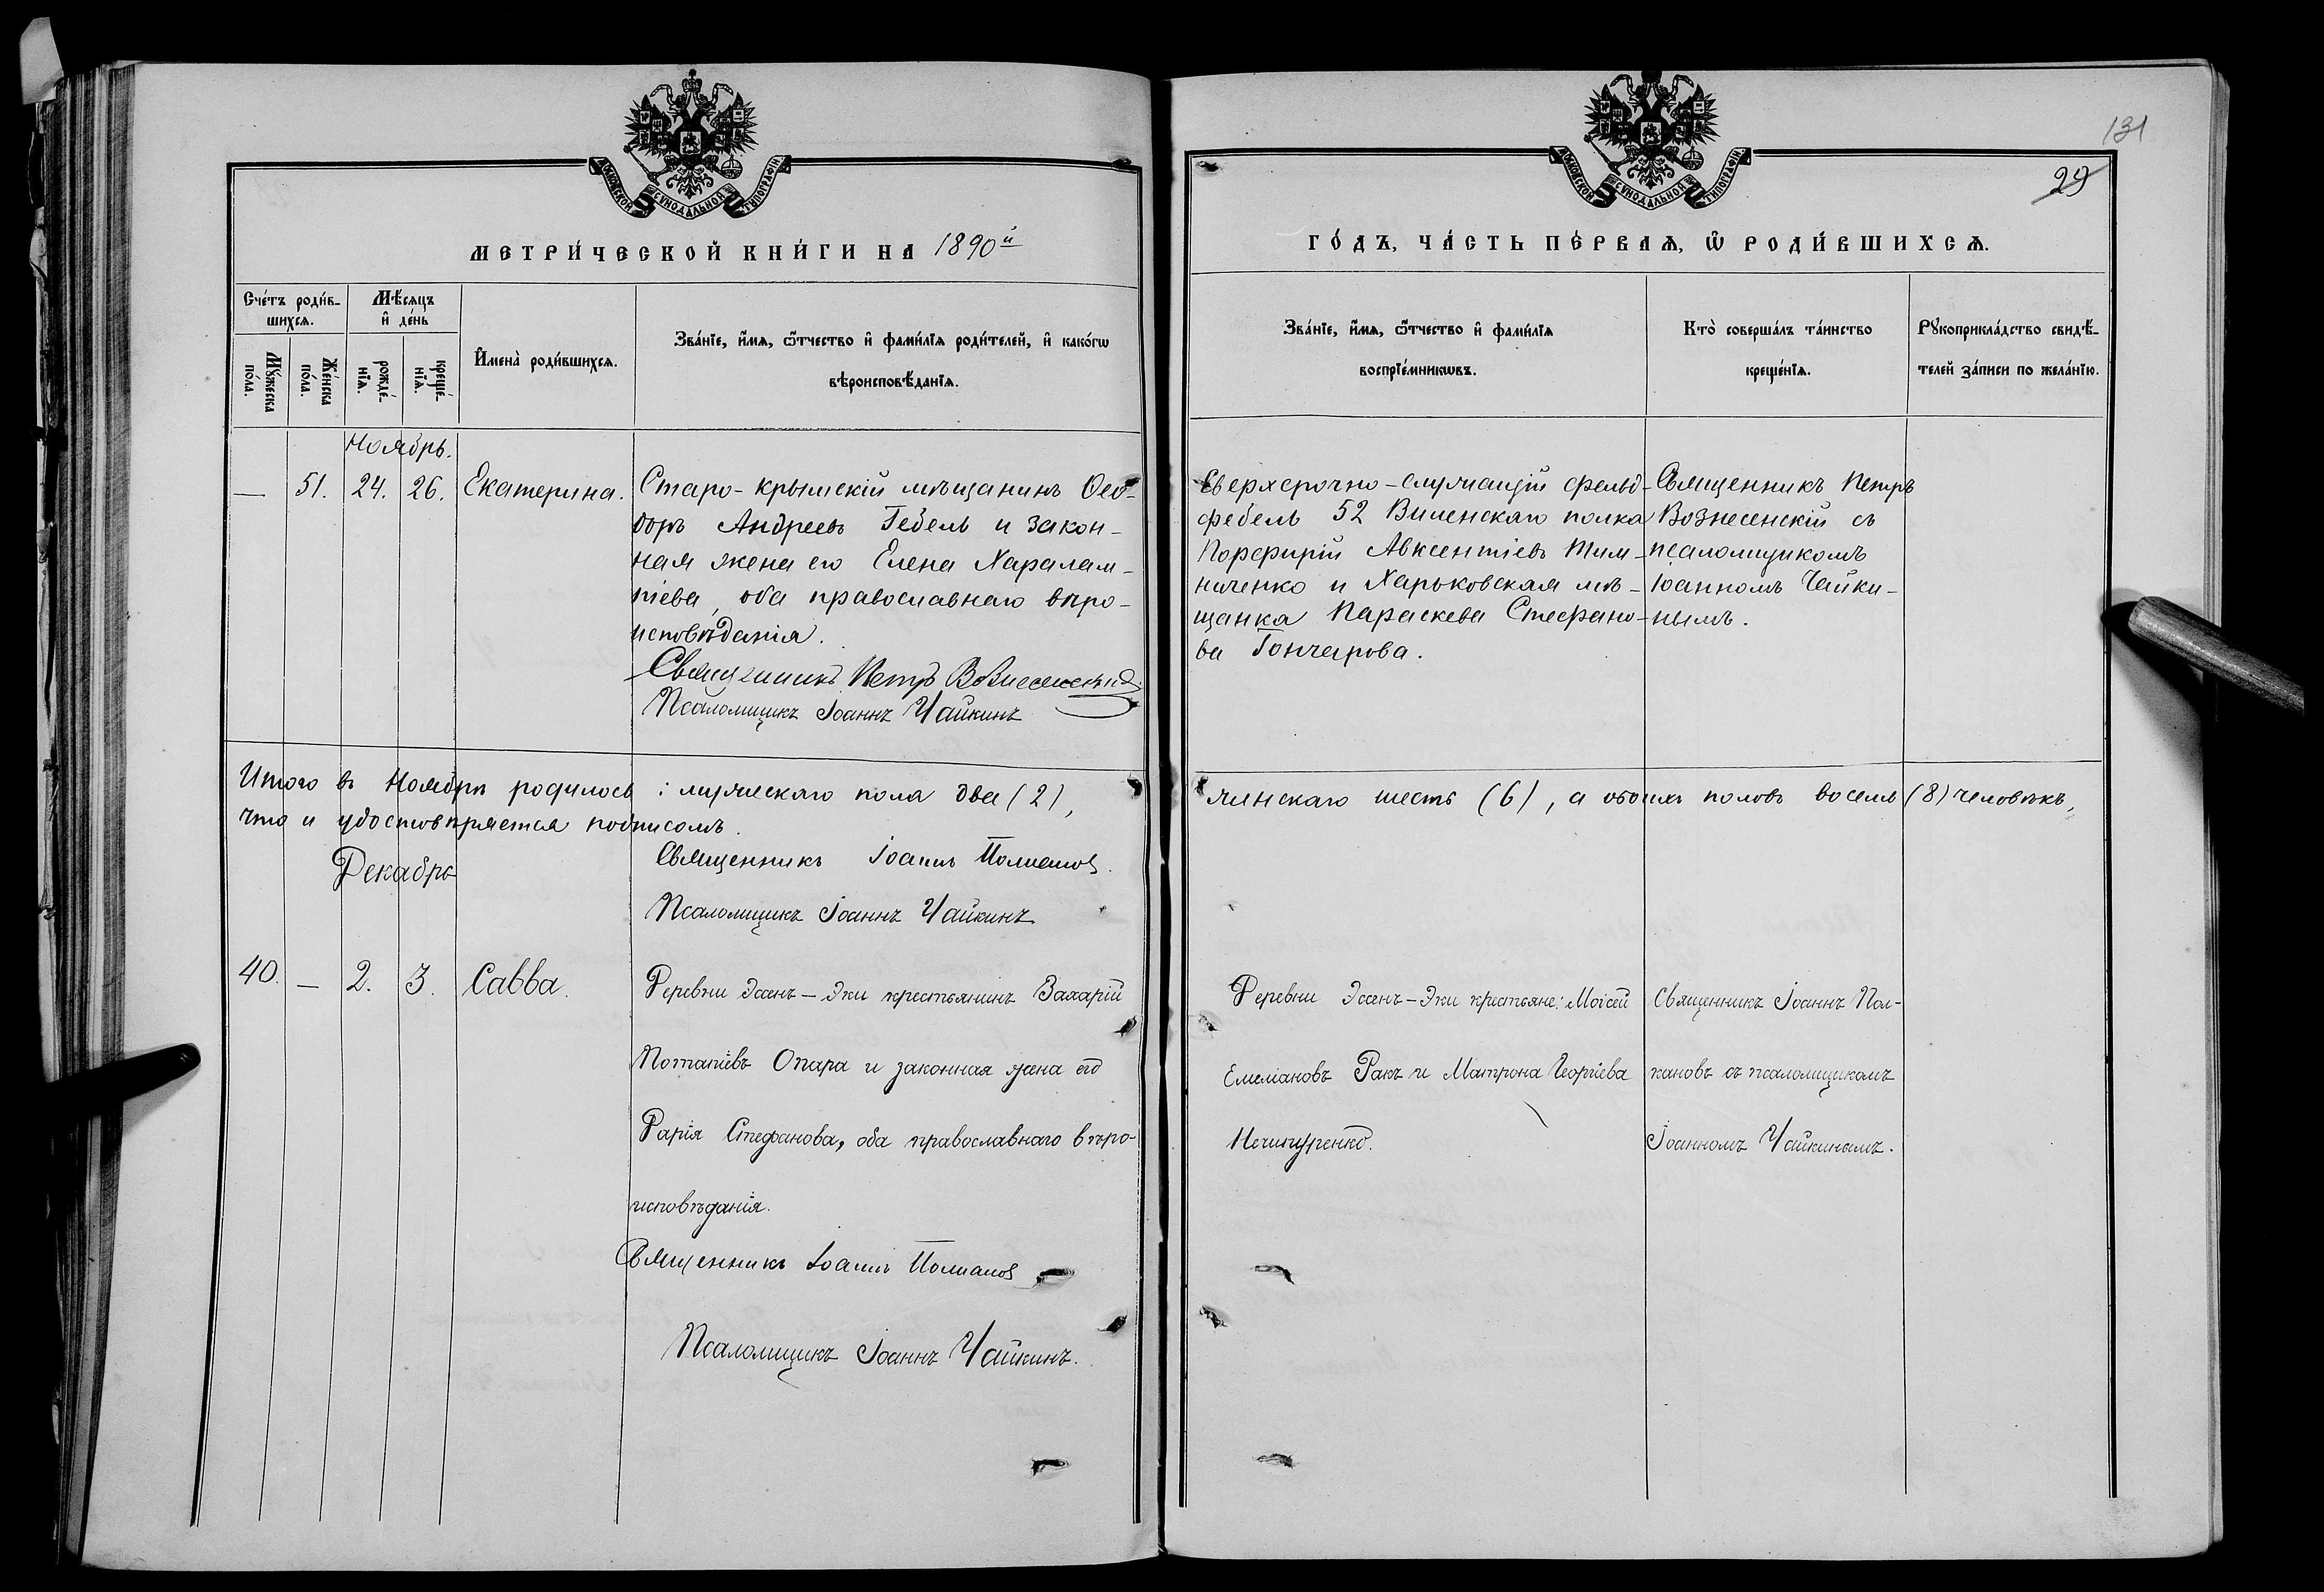 131
29
МОСКОВСКОЙ СѴНОДАЛЬНОЙ ТИПОГРАФІИ
МЕТРИ́ЧЕСКОЙ КНИ́ГИ НА 1890й
Сче́тъ роди́в-
шихсѧ.
Мꙋ́жеска
по́ла.
Же́нска
по́ла.
Мѣ́сяцъ
и҆ де́нь
рожде́-
нїѧ.
креще́-
нїѧ.
И҆мена̀ роди́вшихсѧ.
Зва́нїе, и҆́мѧ, ѻ҆́тчество и҆ фами́лїѧ роди́телей, и҆ како́гѡ
вѣроисповѣ́данїѧ.
Ноябрь.
— 51. 24. 26. Екатерина.
Старо-крымскій мѣщанинъ Ѳео-
доръ Андреевъ Гебель и закон-
ная жена его Елена Харалам-
піева, оба православнаго вѣро-
исповѣданія.
Священникъ Петръ Вознесенскій
Псаломщикъ Іоаннъ Чайкинъ
Итого въ Ноябрѣ родилось: мужескаго пола два (2),
что и удостовѣряется подписомъ.
Декабрь
Священникъ Іоаннъ Полкановъ.
Псаломщикъ Іоаннъ Чайкинъ
40. — 2. 3. Савва.
Деревни Эссенъ-Эки крестьянинъ Захарій
Потапіевъ Опара и законная жена его
Дарія Стефанова, оба православнаго вѣро-
исповѣданія.
Священникъ Іоаннъ Полкановъ
Псаломщикъ Іоаннъ Чайкинъ.
МОСКОВСКОЙ СѴНОДАЛЬНОЙ ТИПОГРАФІИ
ГО́ДЪ, ЧА́СТЬ ПЕ́РВАѦ, Ѡ҆ РОДИ́ВШИХСѦ.
Зва́нїе, и҆́мѧ, ѻ҆́тчество и҆ фами́лїѧ
воспрїе́мникѡвъ.
Кто̀ соверша́лъ та́инство
креще́нїѧ.
Рꙋкоприкла́дство свидѣ́-
телей за́писи по жела́нїю.
Сверхсрочно-служащій фельд-
фебель 52 Виленскаго полка
Порфирій Авксентіевъ Тим-
ниченко и Харьковская мѣ-
щанка Параскева Стефано-
ва Гончарова.
Священникъ Петръ
Вознесенскій съ
псаломщикомъ
Іоанномъ Чайки-
нымъ.
женскаго шесть (6), а обоихъ половъ восемь (8) человѣкъ,
Деревни Эссенъ-Эки крестьяне: Моісей
Емеліановъ Ракъ и Матрона Георгіева
Нечипуренко.
Священникъ Іоаннъ Пол-
кановъ съ псаломщикомъ
Іоанномъ Чайкинымъ.